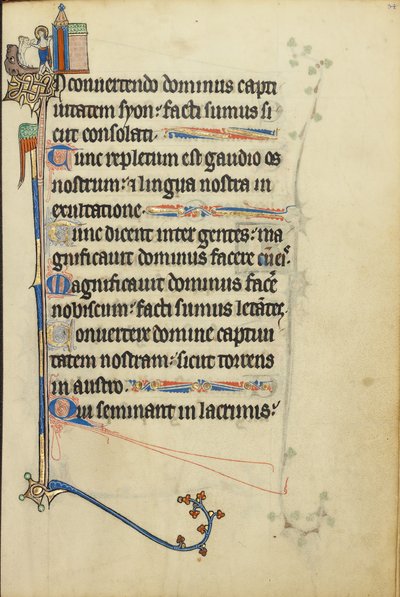 In convertendo dominus capti
uitatem syon: facti sumus si
cut consolati.
Tunc repletum est gaudio os
nostrum: & lingua nostra in
exultatione.
Tunc dicent inter gentes: ma
gnificauit dominus facere cū eiˢ.
Magnificauit dominus facͤe
nobiscum: facti sumus letātes.
Conuertere domine captiui
tatem nostram: sicut torrens
in austro.
Qui seminant in lacrimis: